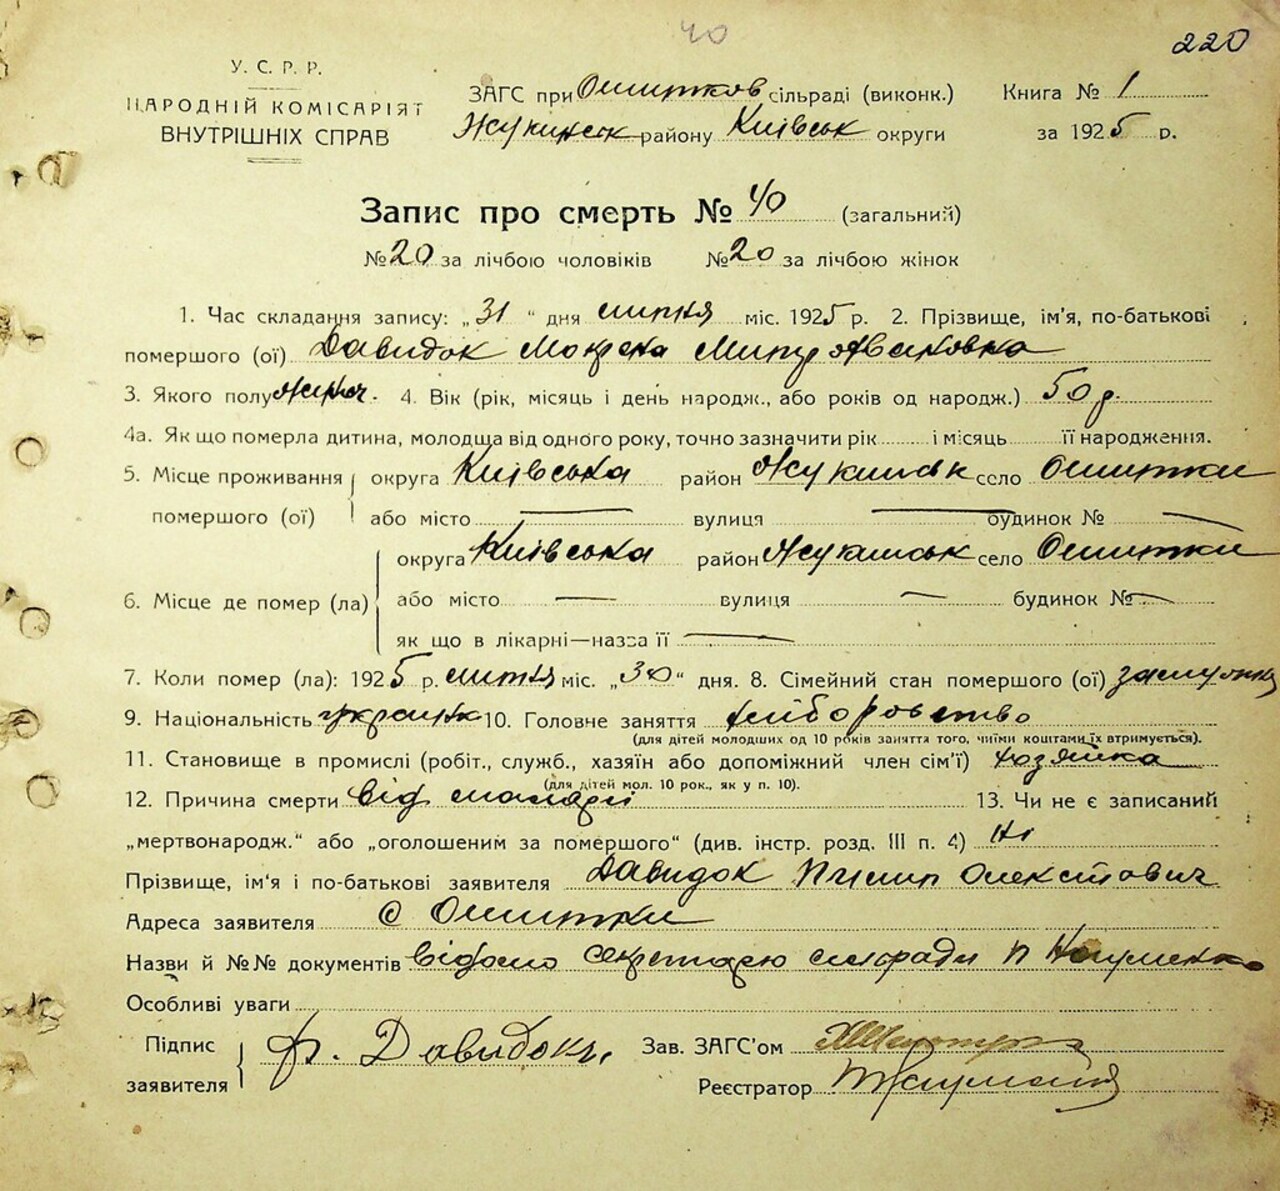 40
220
У. С. Р. Р.
НАРОДНІЙ КОМІСАРІЯТ
ВНУТРІШНІХ СПРАВ
ЗАГС при Ошитков сільраді (виконк.)
Жукинськ району Київськ округи
Книга № 1
за 1925 р.
Запис про смерть № 40 (загальний)
№ 20 за лічбою чоловіків № 20 за лічбою жінок
1. Час складання запису: „31“ дня липня міс. 1925 р. 2. Прізвище, ім'я, по-батькові
помершого (ої) Давидок Мокрена
3. Якого полу жіноч. 4. Вік (рік, місяць і день народж., або років од народж.) 50 р.
4а. Як що померла дитина, молодща від одного року, точно зазначити рік і місяць її народження.
5. Місце проживання округа Київська район Жукинськ село Ошитки
помершого (ої) або місто — вулиця — будинок № —
округа Київська район Жукинськ село Ошитки
6. Місце де помер (ла) або місто — вулиця — будинок № —
як що в лікарні—назва її —
7. Коли помер (ла): 1925 р. липня міс. „30“ дня. 8. Сімейний стан помершого (ої) замужня
9. Національність українк 10. Головне заняття хліборобство
(для дітей молодших од 10 років заняття того, чиїми коштами їх втримується).
11. Становище в промислі (робіт., служб., хазяїн або допоміжний член сім'ї) хозяйка
(для дітей мол. 10 рок., як у п. 10).
12. Причина смерти від малярії 13. Чи не є записаний
„мертвонародж.“ або „оголошеним за помершого“ (див. інстр. розд. III п. 4) ні
Прізвище, ім'я і по-батькові заявителя Давидок Пилип Олексійович
Адреса заявителя с Ошитки
Назви й №№ документів відомо секретарю сільради п Науменко
Особливі уваги
Підпис
заявителя Ф. Давидок
Зав. ЗАГС'ом
Реєстратор